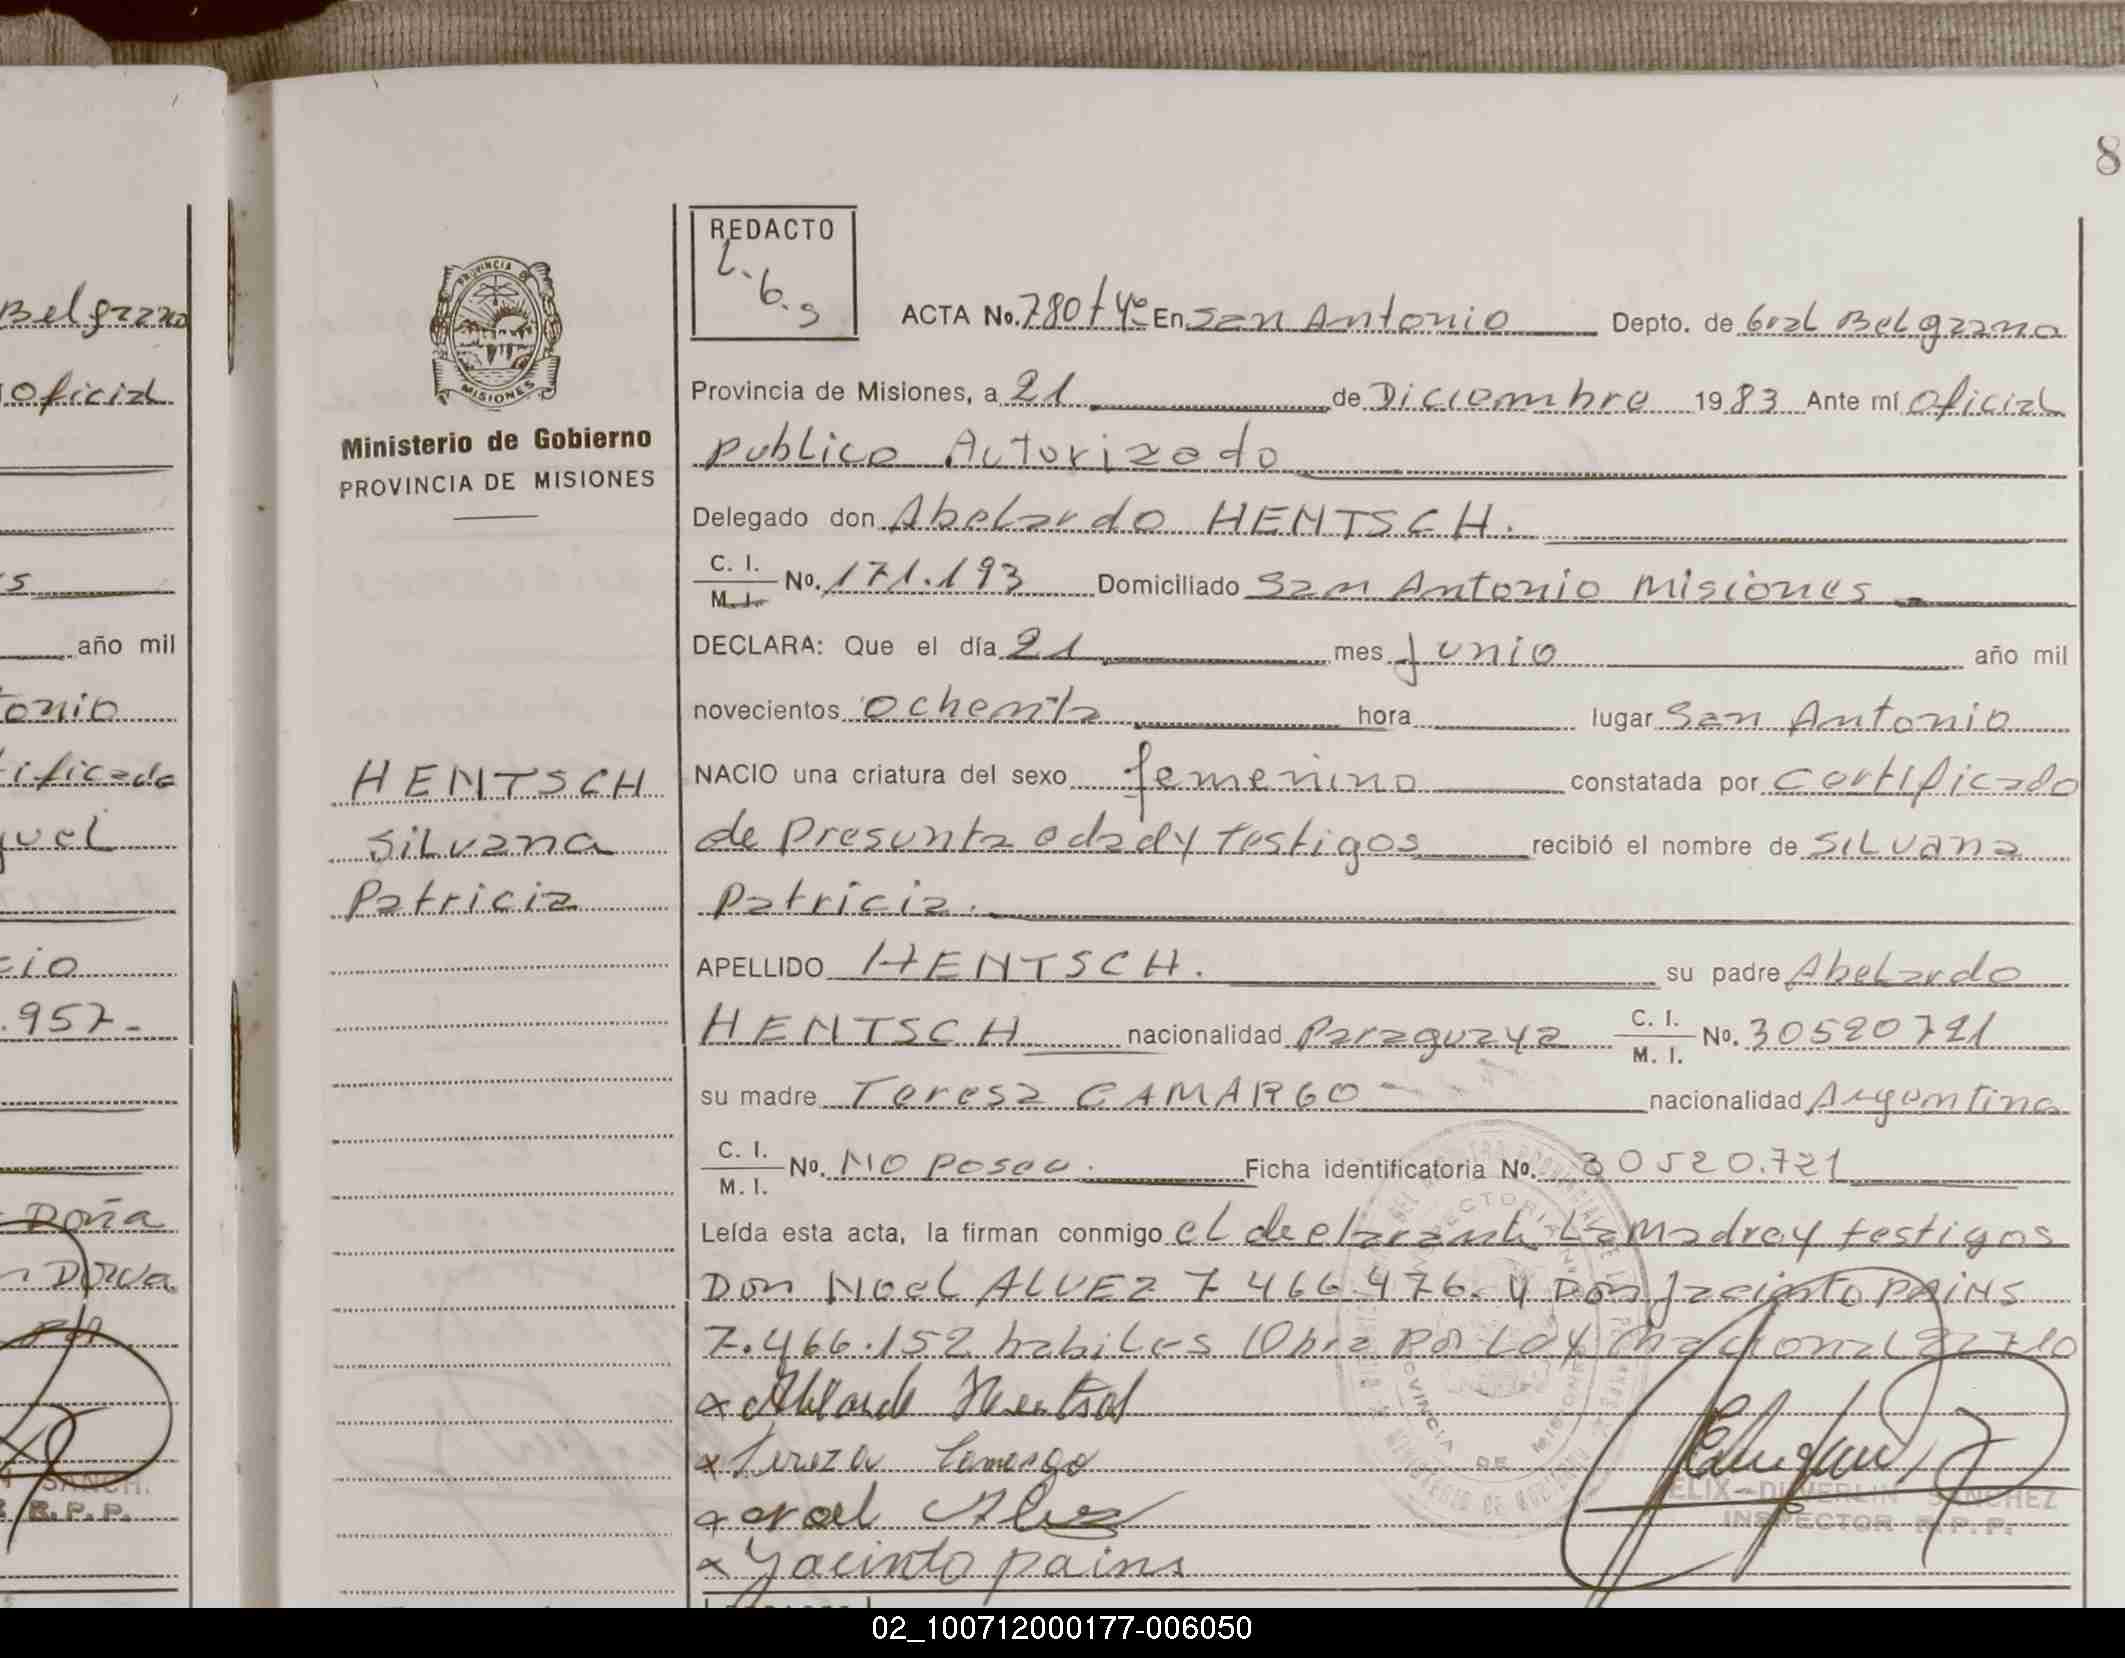 Belgrano
Oficial
s
año mil
tonio
tificado
guel
cio
.957-
Doña
B.P.P.
8
PROVINCIA DE
MISIONES
Ministerio de Gobierno
PROVINCIA DE MISIONES
HENTSCH
Silvana
Patricia
REDACTO
ACTA No. 780 t 4º En San Antonio Depto. de Gral Belgrano
Provincia de Misiones, a 21 de Diciembre 1983 Ante mí Oficial
publico Autorizado
Delegado don Abelardo HENTSCH.
C. I.
M. I. No. 171.193 Domiciliado San Antonio Misiones
DECLARA: Que el día 21 mes Junio año mil
novecientos ochenta hora lugar San Antonio
NACIO una criatura del sexo femenino constatada por certificado
de Presunta edad y testigos recibió el nombre de SILVana
Patricia.
APELLIDO HENTSCH. su padre Abelardo
HENTSCH nacionalidad Paraguaya C. I. M. I. No. 30520721
su madre Teresa CAMARGO nacionalidad Argentina
C. I.
M. I. No. NO Posee. Ficha identificatoria No. 30520.721
Leída esta acta, la firman conmigo el declarante La Madre y testigos
Don Noel ALVEZ 7 466.476. y Don Jacinto PAINS
7.466.152 habiles Obra por Ley Nacional 22710
x Abelardo Hentsch
x Tereza Camargo
x Noel Alvez
x Jacinto pains
FELIX-DUVERLIN SANCHEZ
INSPECTOR R.P.P.
02_100712000177-006050